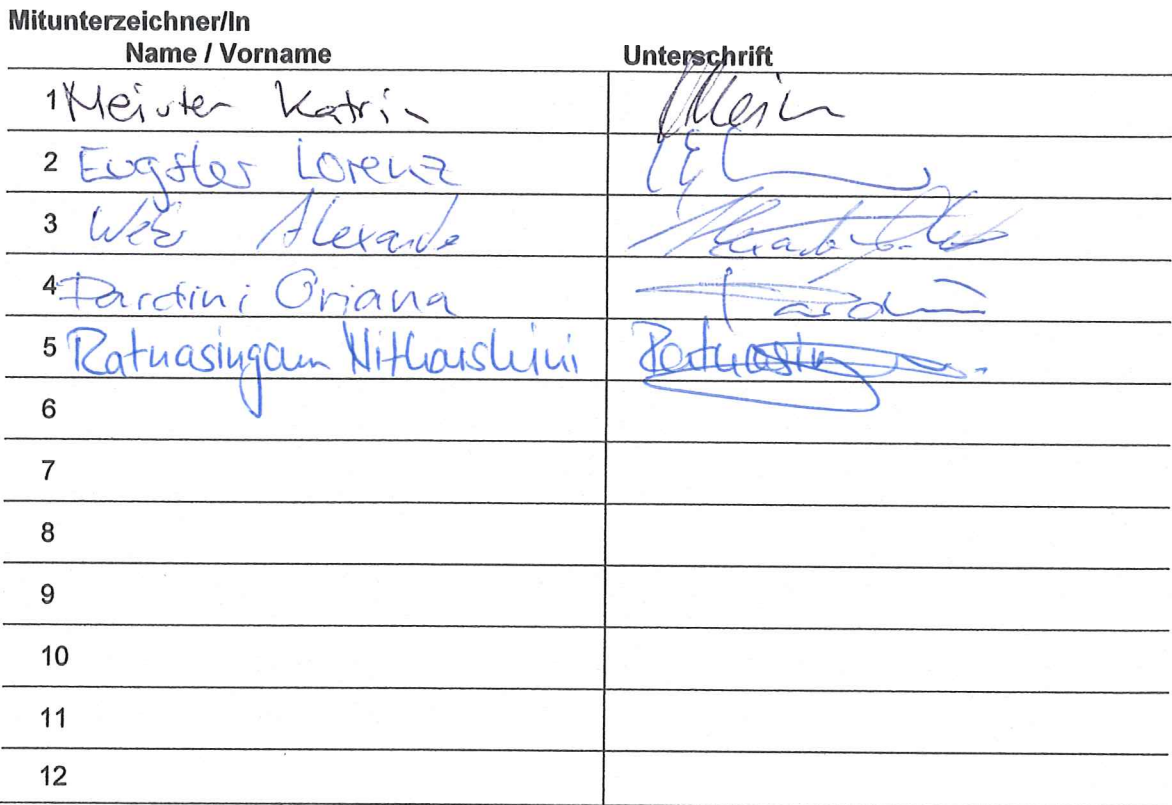 Mitunterzeichner/In
Name / Vorname Unterschrift
1 Meister Katrin
2 Eugster Lorenz
3 Weber Alexander
4 Pardini Oriana Pardini
5 Ratnasingam Nitharshini Ratnasing
6
7
8
9
10
11
12